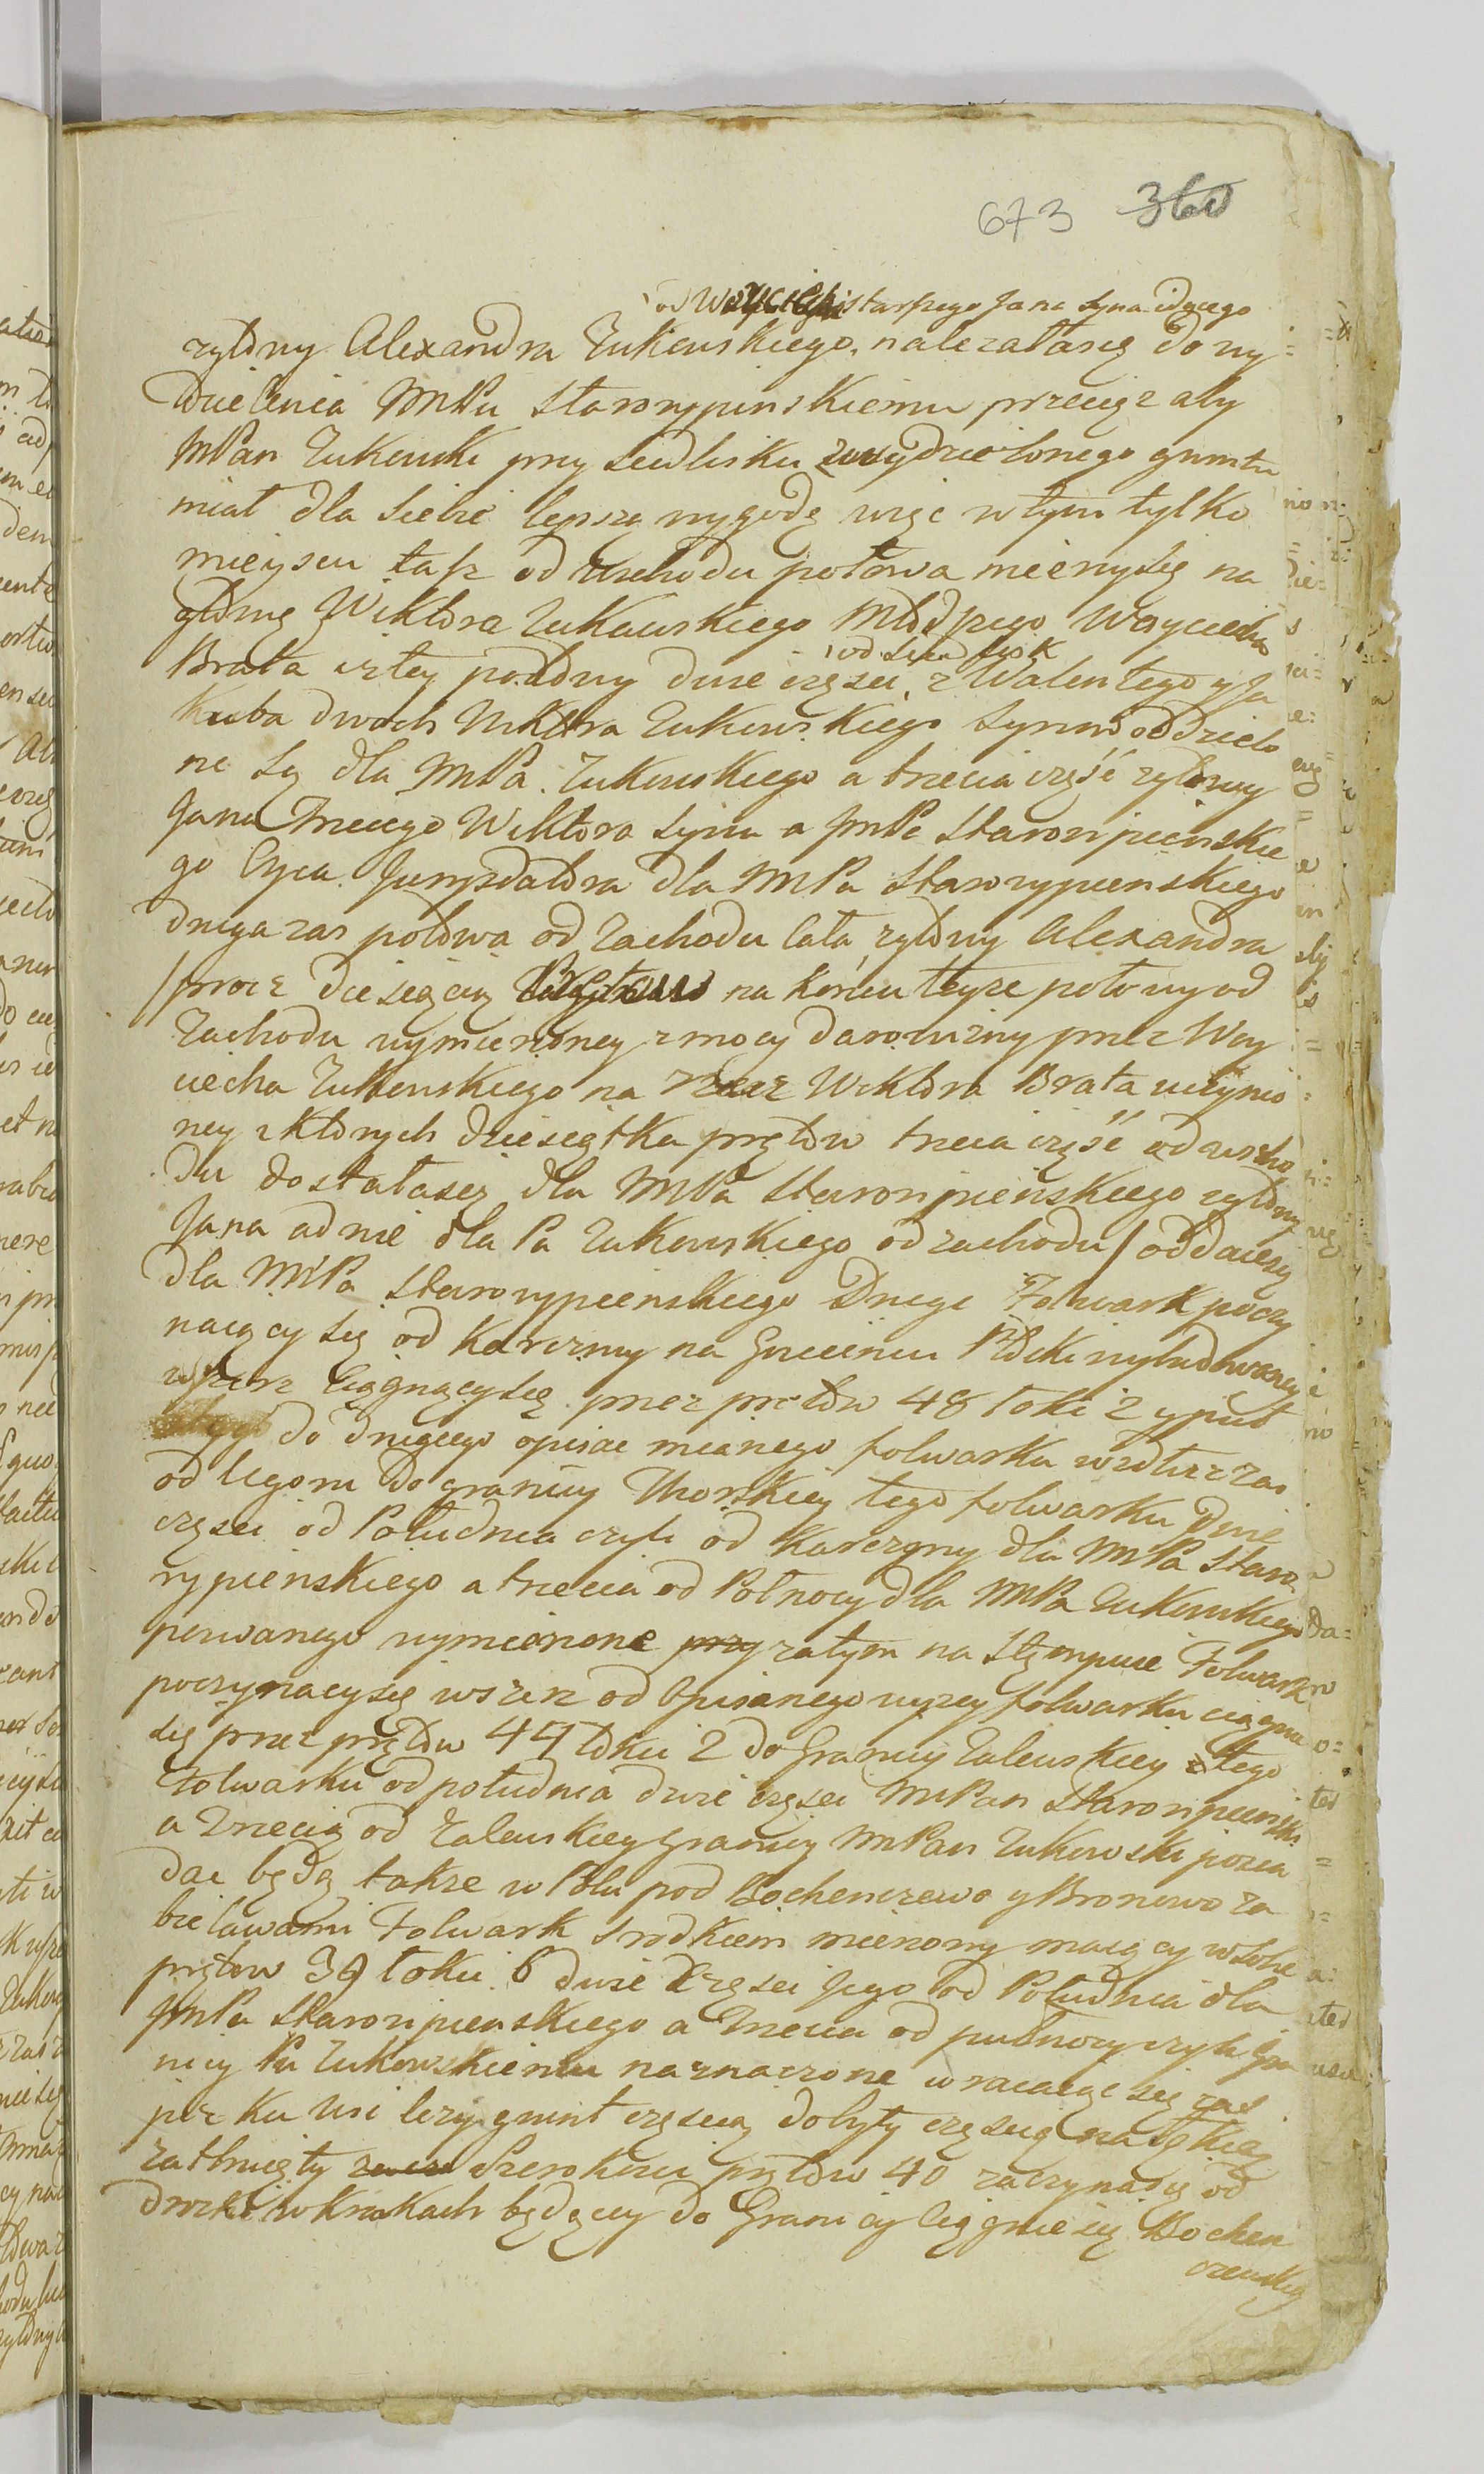 673 360
od Woyciecha starszego Jana syna idącego
rzłowy Alexandra Żukowskiego, należałasię do wy
dzielenia MPu Starorypinskiemu przeciąz aby
MPan Żukowski przy siedlisku zwydzielonego gruntu
miał dla siebie lepszą wygodę więc wtym tylko
mieyscu taż od wschodu połowa mieniąsię na
głowę Wiktora Żukowskiego Młodszego Woyciecha
od siedlisk
Brata iztey połowy dwie części, z Walentego y Ja
kuba dwoch Wiktora Żukowskiego synow oddzielo
ne są dla MPa. Żukowskiego a trzecia część zgłowy
Jana trzeciego Wiktora syna a JmPa Starorypienskie
go Oyca dla MPa Starorypienskiego
druga zas połowa od Zachodu cała zgłowy Alexandra
/procz diesięciu Prętow na końcu teyze połowy od
Zachodu wymierzoney z mocy darowizny przez Woy
ciecha Żukowskiego na rzecz Wiktora Brata uczynio
ney z ktorych dziesiątka prętow trzecia część od wscho
du dostałasię dla MPa Starorypienskiego zgłowy
Jana a dwie dla Pa Żukowskiego od zachodu/ oddaiesię
dla MPa Starorypienskiego Drugi Folwark poczy
naiący się od Karczmy na Gościncu Płocki wybudowaney
wszerz ciągnącysię przez prętow 48 łokci 2 y puł
do drugiego opisac mianego folwarku wzdłuz zas
od Ugoru do granicy Thorskiey tego folwarku Dwie
części od Południa czyli od Karczmy dla MPa Staro
rypienskiego a trzecia od Połnocy dla MPa Żukowskiego
pozwanego wymierzone przy zatym na Folwark
poczynaiącysię wszerz od opisanego wyzey folwarku ciągnie
się przez prętow 44 łokci 2 do Granicy Zalewskiey z tego
Folwarku od południa dwie części MPan Starorypienski
a trzecią od Zalewskiey granicy MPan Żukowski posia
dac będą także w Polu pod Bochenczewo y Bronowo za
bielawami Folwark srodkiem mierzony maiący wsobie
prętow 39 łokci 6 dwie Części Jego od Południa dla
JmPa Starorypienskiego a trzecia od pułnocy czyli Gra
nicy Pu Żukowskiemu naznaczone wracaiąc się zas
ku Wsi lezy grunt częścią dobyty częścią
zatknięty Szerokosci prętow 40 zaczynasię od
drozki w Krzakach będącey do Granicy ciągnie się Bochen
czewskiey